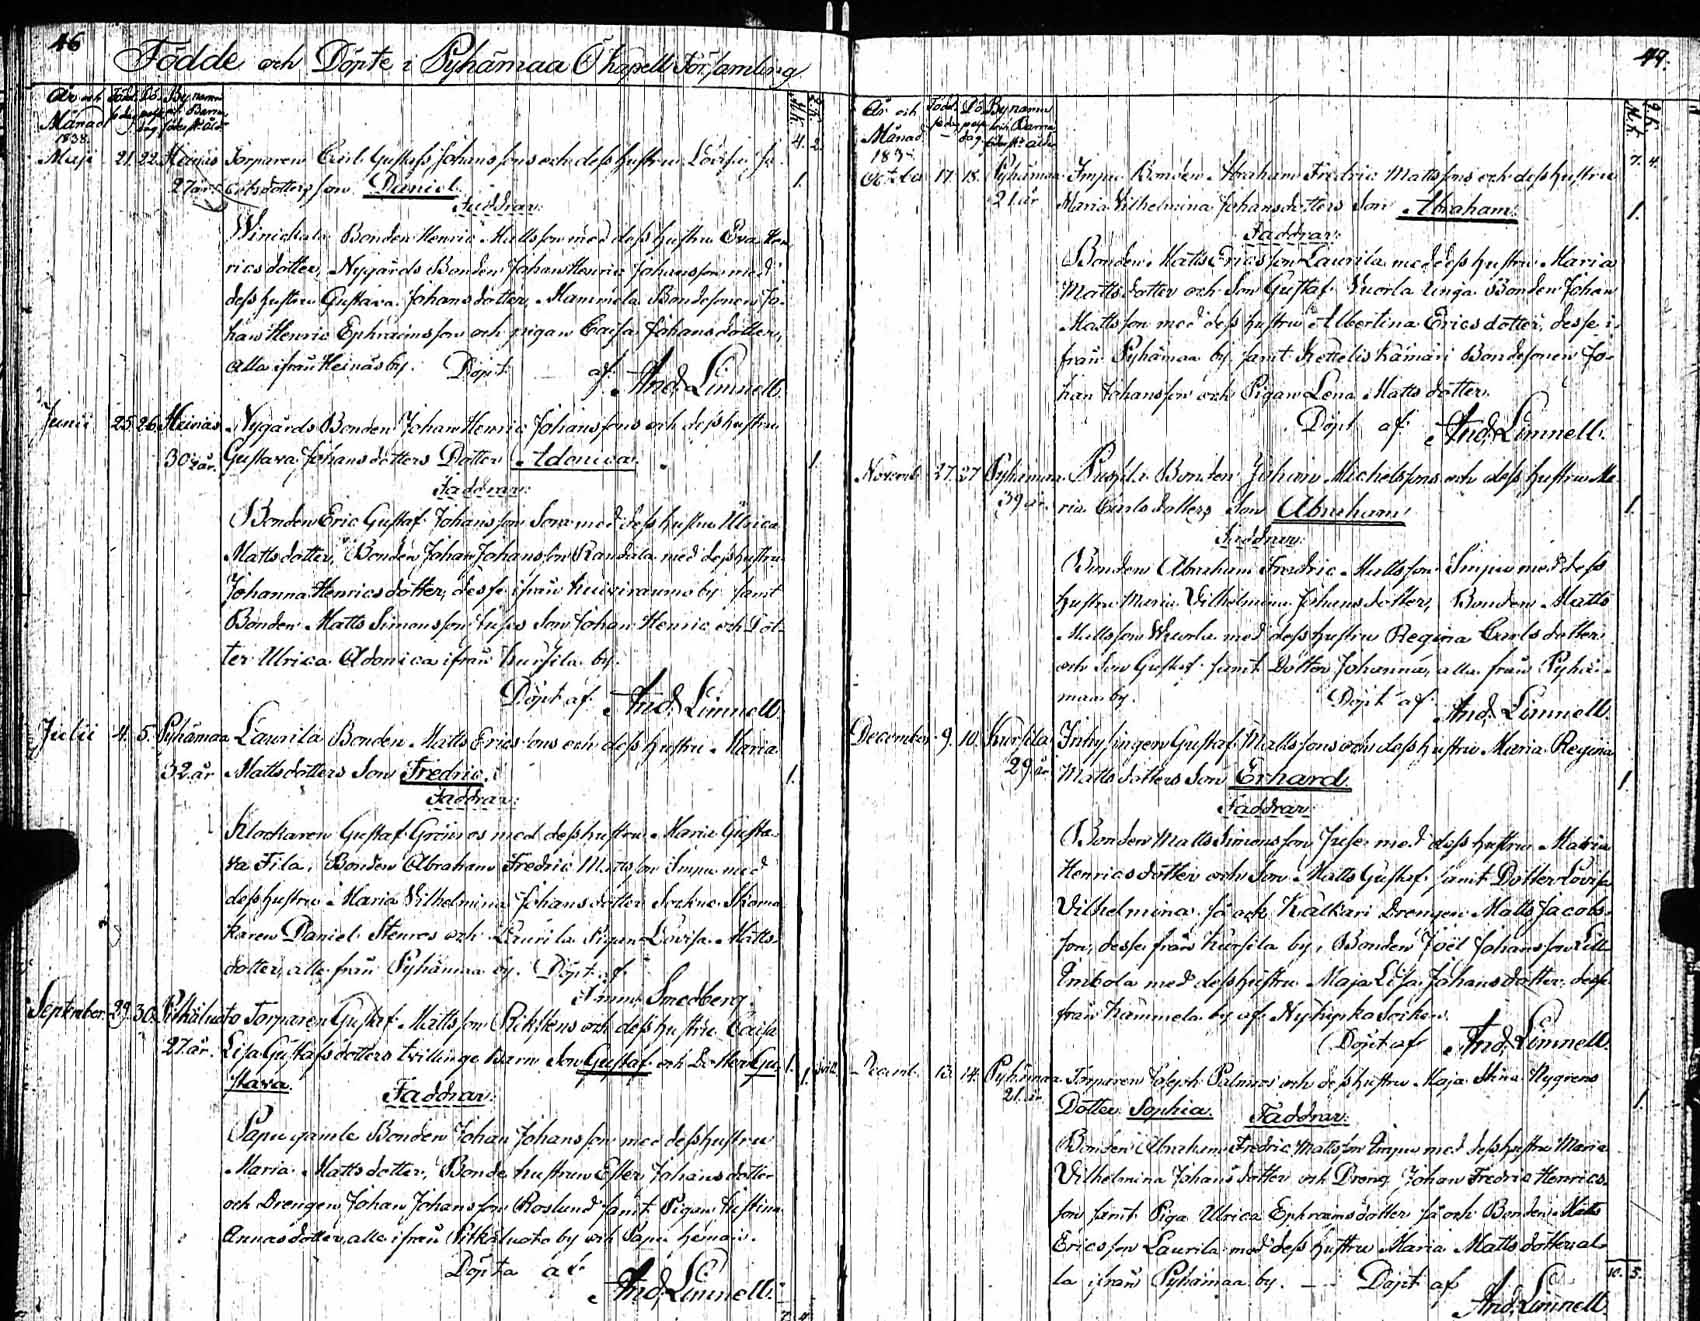 46
Födde och Döpte i Pyhämaa Ö kapell Församling
År och Månad
1838.
4. 2.
Maji 21. 22. Heinäs Torparen Carl Gustafs Johanssons och dess hustru Lovisa Ja-
27 år cobsdotters son Daniel. 1.
Faddrar:
Bonden Henric Mattsson med dess hustru Eva Hen-
ricsdotter, Nygårds Bonden Johan Henric Johansson med
dess hustru Gustava Johansdotter, Mammela Bondesonen Jo-
han Henric Ephraimsson och pigan Caisa Johansdotter,
alla ifrån Heinäs by. Döpt af And. Limnell.
Junii 25. 26. Heinäs Nygårds Bonden Johan Henric Johanssons och dess hustru
30 år. Gustava Johansdotters Dotter Adonica. 1.
Faddrar:
Bonden Eric Gustaf Johansson med dess hustru Ulrica
Mattsdotter, Bonden Johan Johansson Randala med dess hustru
Johanna Henricsdotter, desse ifrån by samt
Bonden Matts Simonsson Juses Son Johan Henric och Dot-
ter Ulrica Adonica ifrån Kursila by.
Döpt af And. Limnell.
Julii 4. 5. Pyhämaa Laurila Bonden Matts Ericssons och dess hustru Maria
32 år Mattsdotters Son Fredric. 1.
Faddrar:
Klockaren Gustaf Grönroos med dess hustru Maria Gusta-
va Fila, Bonden Abraham Fredric Mattsson Impu med
dess hustru Maria Vilhelmina Johansdotter Sockne Skoma-
karen Daniel Stenroos och Laurila Pigan Lovisa Matts-
dotter, alla från Pyhämaa by. Döpt af
Smedberg.
September. 29. 30. Pitkäluoto Torparen Gustaf Mattsson Rikstens och dess hustru Caisa
27 år. Lisa Gustafsdotters tvillinge barn Son Gustaf och Dotter Gu- 1. 1.
stava. Faddrar:
Papu gamle Bonden Johan Johansson med dess hustru
Maria Mattsdotter, Bonde hustrun Ester Johansdotter
och Drengen Johan Johansson Roslund samt Pigan
Annasdotter, alla ifrån Pitkäluoto by och Papu heman.
Döpta af And. Limnell.
7. 4.
47.
År och Månad
183
7. 4.
October 17. 18. Pyhämaa Impu Bonden Abraham Fredric Mattssons och dess hustru
21 år Maria Vilhelmina Johansdotters Son Abraham. 1.
Faddrar:
Bonden Matts Ericsson Laurila med dess hustru Maria
Mattsdotter och Son Gustaf. Vuorla unga Bonden Johan
Mattsson med dess hustru Albertina Ericsdotter, desse i-
från Pyhämaa by, samt Bondesonen Jo-
han Johansson och Pigan Lena Mattsdotter.
Döpt af And. Limnell.
Novemb. 27. 27. Pyhämaa Bonden Johan Michelssons och dess hustru Ma-
39 år. ria Carlsdotters Son Abraham. 1.
Faddrar:
Bonden Abraham Fredric Mattsson Impu med dess
hustru Maria Vilhelmina Johansdotter, Bonden Matts
Mattsson Wuorla med dess hustru Regina Carlsdotter
och Son Gustaf samt Dotter Johanna, alla från Pyhä-
maa by. Döpt af And. Limnell.
December 9. 10. Kursila Inhysingen Gustaf Mattssons och dess hustru Maria Regina
29 år Mattsdotters Son Erhard. 1.
Faddrar:
Bonden Matts Simonsson Juse med dess hustru Maria
Henricsdotter och Son Matts Gustaf samt Dotter Lovisa
Vilhelmina så ock Kalkari Drengen Matts Jacobs-
son, desse från Kursila by, Bonden Joël Johansson Lill
Imbola med dess hustru Maja Lisa Johansdotter, desse
från Kammela by af Nykyrka Socken.
Döpt af And. Limnell.
Decemb. 13. 14. Pyhämaa Torparen Joseph Palmroos och dess hustru Maja Stina Nygrens
21 år Dotter Sophia. Faddrar: 1.
Bonden Abraham Fredric Mattsson Impu med dess hustru Maria
Vilhelmina Johansdotter och Dreng Johan Fredric Henrics-
son samt Piga Ulrica Ephraimsdotter så ock Bonden Matts
Ericsson Laurila med dess hustru Maria Mattsdotter al-
la ifrån Pyhämaa by. Döpt af And. Limnell.
10. 5.